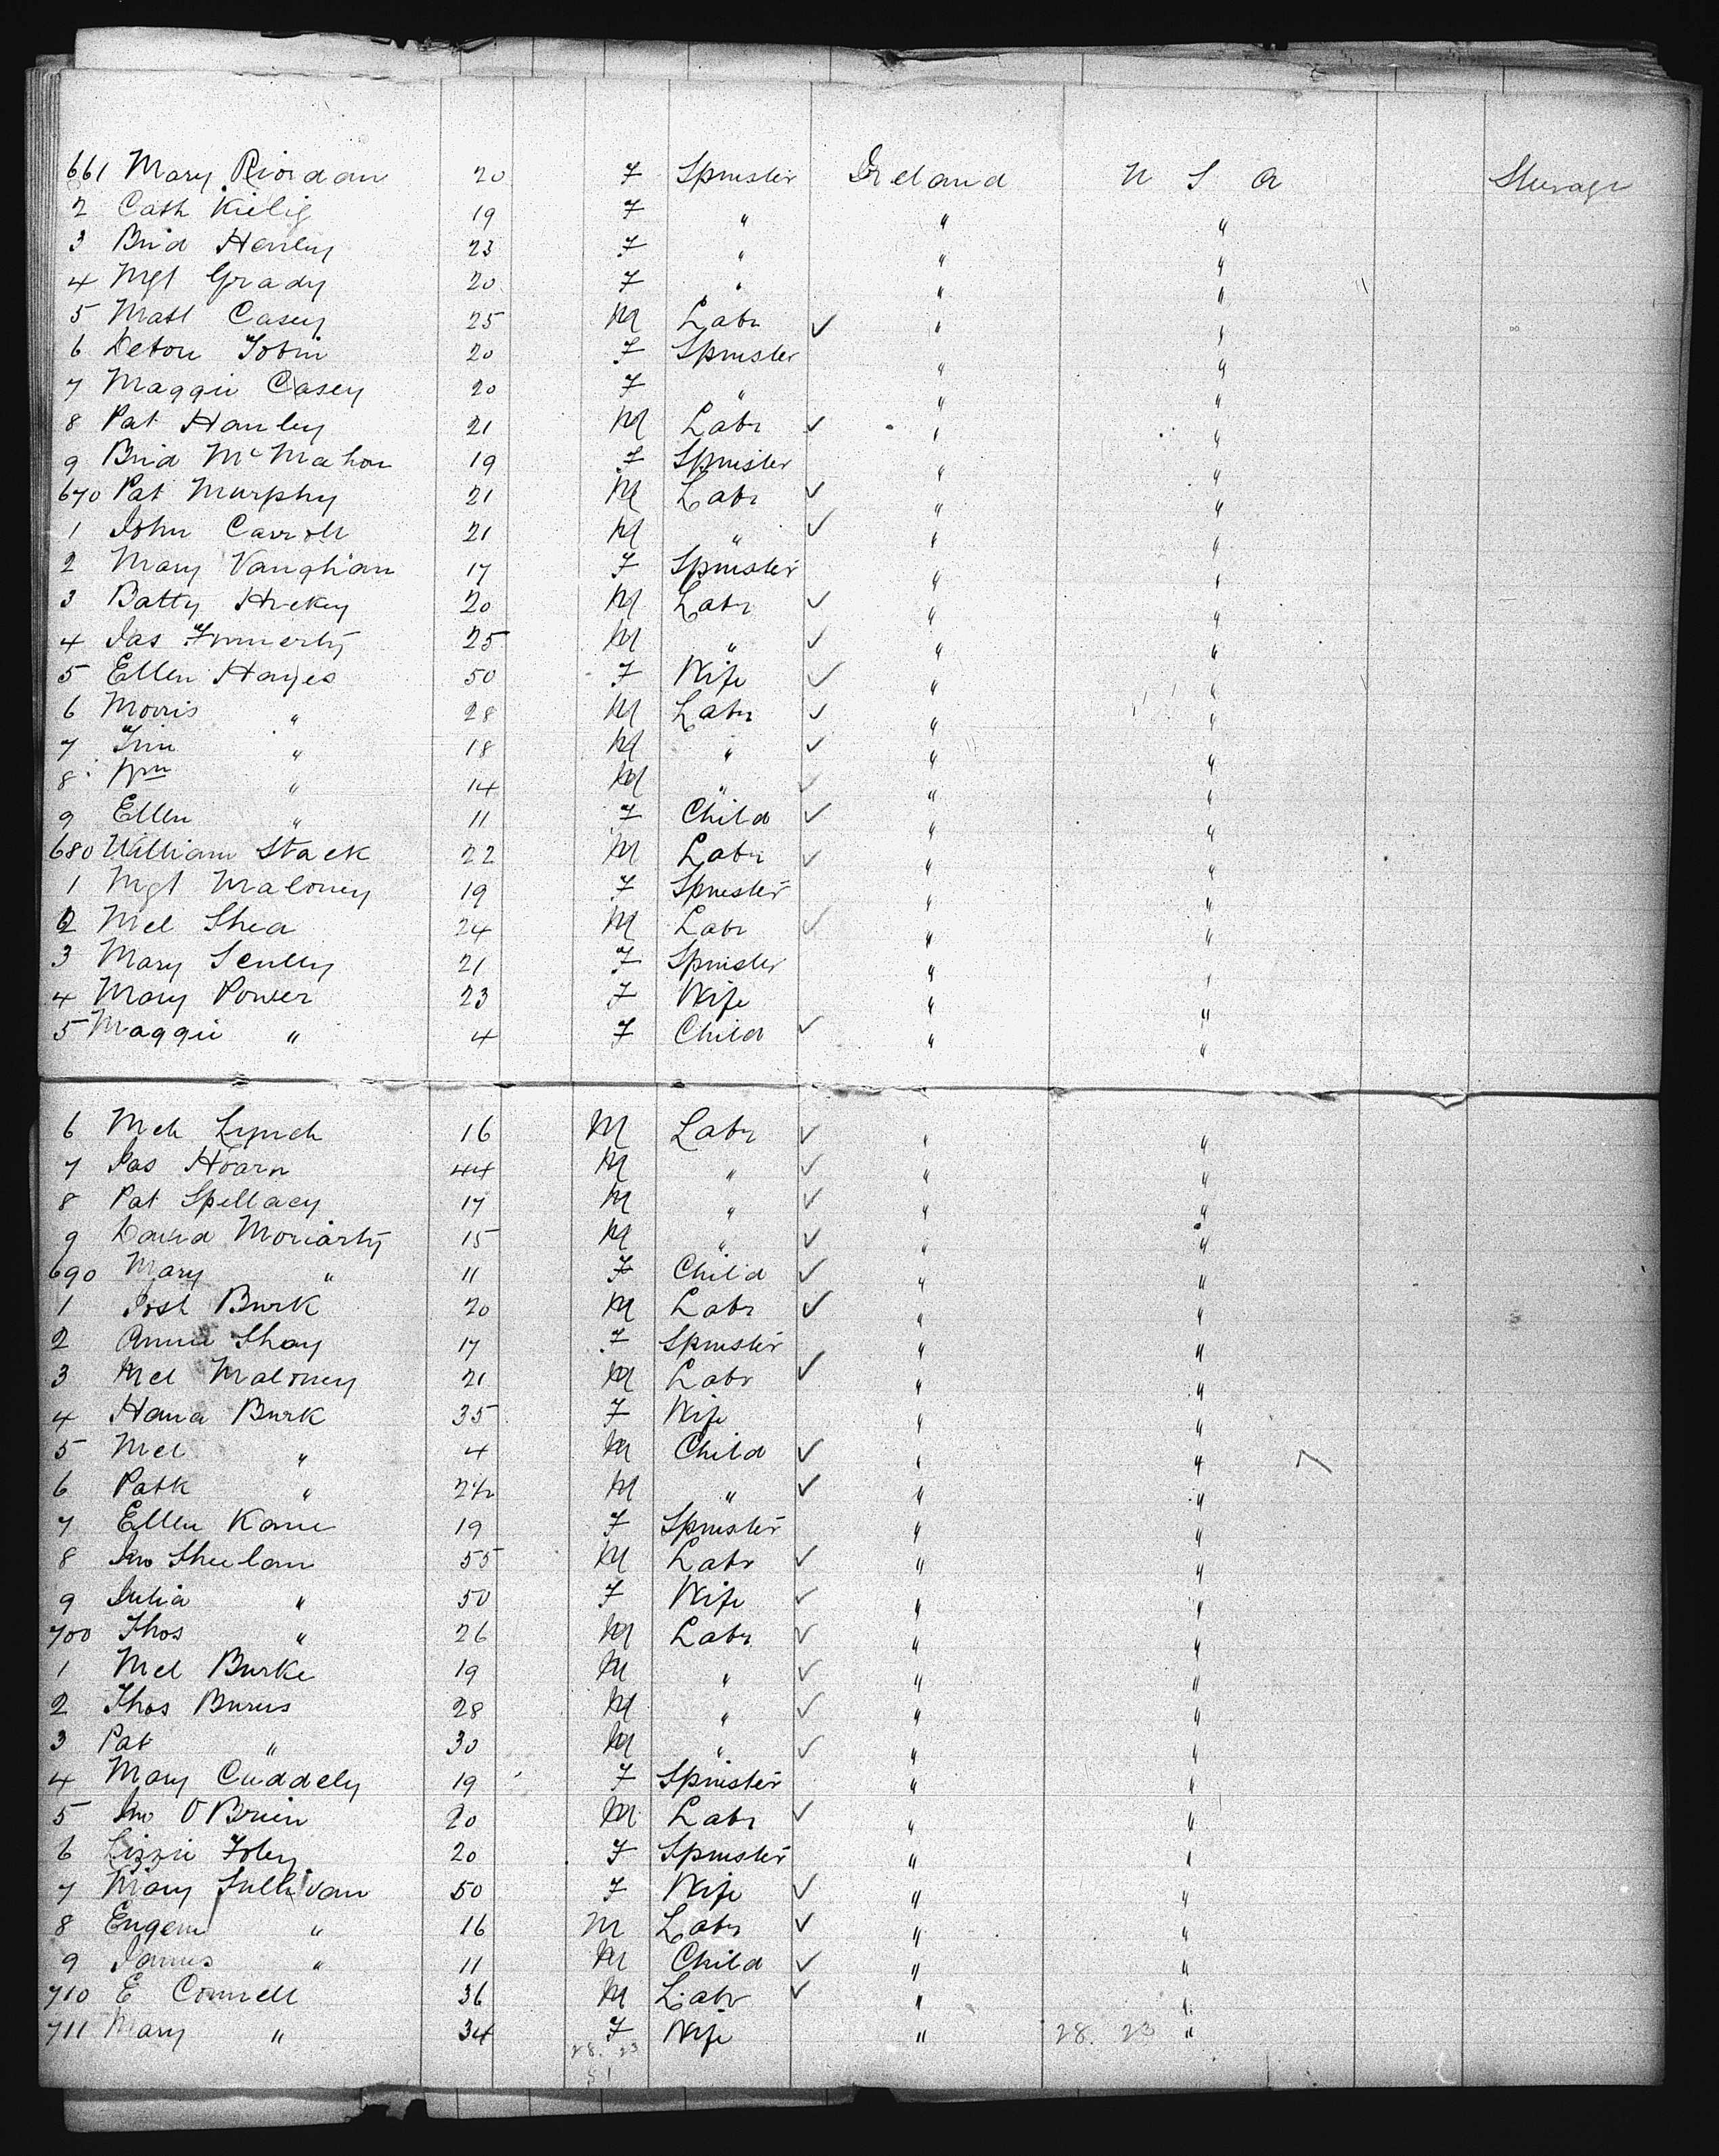 661 Mary Riordan 20 F Spinster Ireland U S A Steerage
2 Cath 19 F " " "
3 Brid Henley 23 F " " "
4 Mgt Grady 20 F " " "
5 Matt Casey 25 M Labr ✓ " "
6 Tobin 20 F Spinster " "
7 Maggie Casey 20 F " " "
8 Pat Hanley 21 M Labr ✓ " "
9 Brid McMahon 19 F Spinster " "
670 Pat Murphy 21 M Labr ✓ " "
1 John Carroll 21 M " ✓ " "
2 Mary Vaughan 17 F Spinster " "
3 Batty Hickey 20 M Labr ✓ " "
4 Jas 25 M " ✓ " "
5 Ellen Hayes 50 F Wife ✓ " "
6 Morris " 28 M Labr ✓ " "
7 Tim " 18 M " ✓ " "
8 Wm " 14 M " ✓ " "
9 Ellen " 11 F Child ✓ " "
680 William Stack 22 M Labr ✓ " "
1 Mgt Maloney 19 F Spinster " "
2 Mcl Shea 24 M Labr ✓ " "
3 Mary Scully 21 F Spinster " "
4 Mary Power 23 F Wife " "
5 Maggie " 4 F Child ✓ " "
6 Mch Lynch 16 M Labr ✓ " "
7 Jas Hoarn 44 M " ✓ " "
8 Pat Spellacy 17 M " ✓ " "
9 David Moriarty 15 M " ✓ " "
690 Mary " 11 F Child ✓ " "
1 Josh Burk 20 M Labr ✓ " "
2 Annie Shay 17 F Spinster " "
3 Mcl Maloney 21 M Labr ✓ " "
4 Hana Burk 35 F Wife " "
5 Mcl " 4 M Child ✓ " "
6 Patk " M " ✓ " "
7 Ellen Kane 19 F Spinster " "
8 Jno Sheelan 55 M Labr ✓ " "
9 Julia " 50 F Wife ✓ " "
700 Thos " 26 M Labr ✓ " "
1 Mcl Burke 19 M " ✓ " "
2 Thos Burns 28 M " ✓ " "
3 Pat " 30 M " ✓ " "
4 Mary Cuddely 19 F Spinster " "
5 Jno O'Brien 20 M Labr ✓ " "
6 Lizzie Foley 20 F Spinster " "
7 Mary Sullivan 50 F Wife ✓ " "
8 Eugene " 16 M Labr ✓ " "
9 James " 11 M Child ✓ " "
710 E Connell 36 M Labr ✓ " "
711 Mary " 34 F Wife " 28. 23 "
28. 23
51